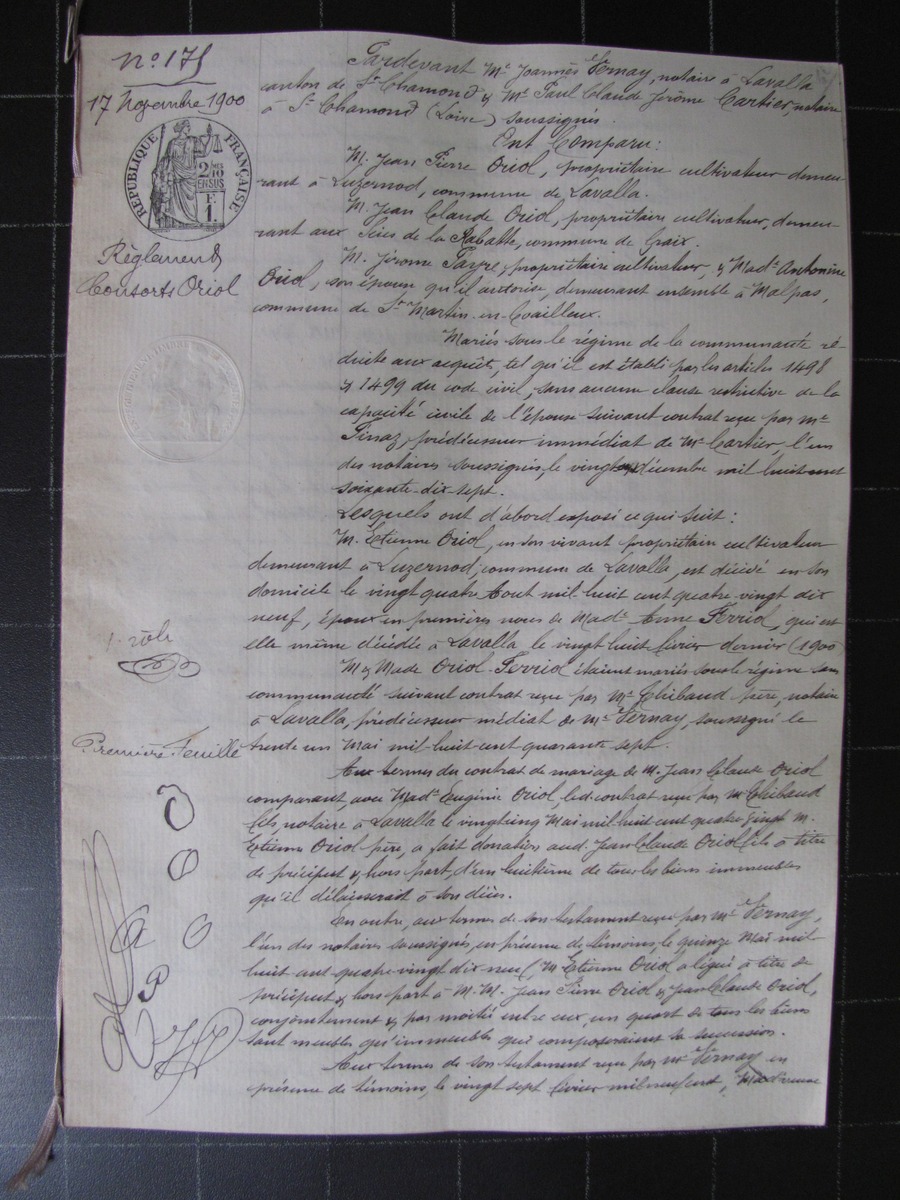 n° 175
17 Novembre 1900
RÉPUBLIQUE FRANÇAISE
2/10
EN SUS
F.
1.
Règlement
Consorts Oriol
1. rôle
Première Feuille
Pardevant Me Joannès Vernay, notaire à Lavalla
canton de St Chamond & Me Paul Claude Jérôme Cartier, notaire
à St Chamond (Loire) soussignés.
Ont Comparu:
M. Jean Pierre Oriol, propriétaire cultivateur demeu
rant à Luzernod, commune de Lavalla.
M. Jean Claude Oriol, propriétaire cultivateur, demeu-
rant aux Scies de la Rabatte, commune de Graix.
M. Jérôme Payre, propriétaire cultivateur, & Made Antonine
Oriol, son épouse qu'il autorise, demeurant ensemble à Malpas,
commune de St Martin-en-Coailleux.
Mariés sous le régime de la communauté ré-
duite aux acquêts, tel qu'il est établi par les articles 1498
& 1499 du code civil, sans aucune clause restrictive de la
capacité civile de l'épouse suivant contrat reçu par Me
Finaz, prédécesseur immédiat de Me Cartier, l'un
des notaires soussignés, le vingt décembre mil huit cent
soixante-dix sept.
Lesquels ont d'abord exposé ce qui suit:
M. Etienne Oriol, en son vivant propriétaire cultivateur
demeurant à Luzernod, commune de Lavalla, est décédé en son
domicile le vingt quatre Aout mil huit cent quatre vingt dix
neuf, époux en premières noces de Made Anne Ferriol, qui est
elle même décédée à Lavalla, le vingt huit février dernier (1900)
M & Made Oriol-Ferriol étaient mariés sous le régime sans
communauté suivant contrat reçu par Me Thibaud père, notaire
à Lavalla, prédécesseur médiat de Me Vernay, soussigné le
trente un Mai mil huit cent quarante sept.
Aux termes du contrat de mariage de M. Jean Claude Oriol
comparant, avec Made Eugénie Oriol, led. contrat reçu par Me Thibaud
fils, notaire à Lavalla le vingt cinq Mai mil huit cent quatre vingt M.
Etienne Oriol père, a fait donation aud. Jean Claude Oriol fils à titre
de préciput & hors part, d'un huitième de tous les biens immeubles
qu'il délaisserait à son décès.
En outre, aux termes de son testament reçu par Me Vernay,
l'un des notaires soussignés, en présence de témoins, le quinze Mai mil
huit cent quatre vingt dix neuf, M Etienne Oriol a légué à titre de
préciput & hors part à M.M. Jean Pierre Oriol & Jean Claude Oriol,
conjointement & par moitié entre eux, un quart de tous les biens
tant meubles qu'immeubles qui composeraient sa succession.
Aux termes de son testament reçu par Me Vernay en
présence de témoins, le vingt sept février mil neuf cent, Made veuve